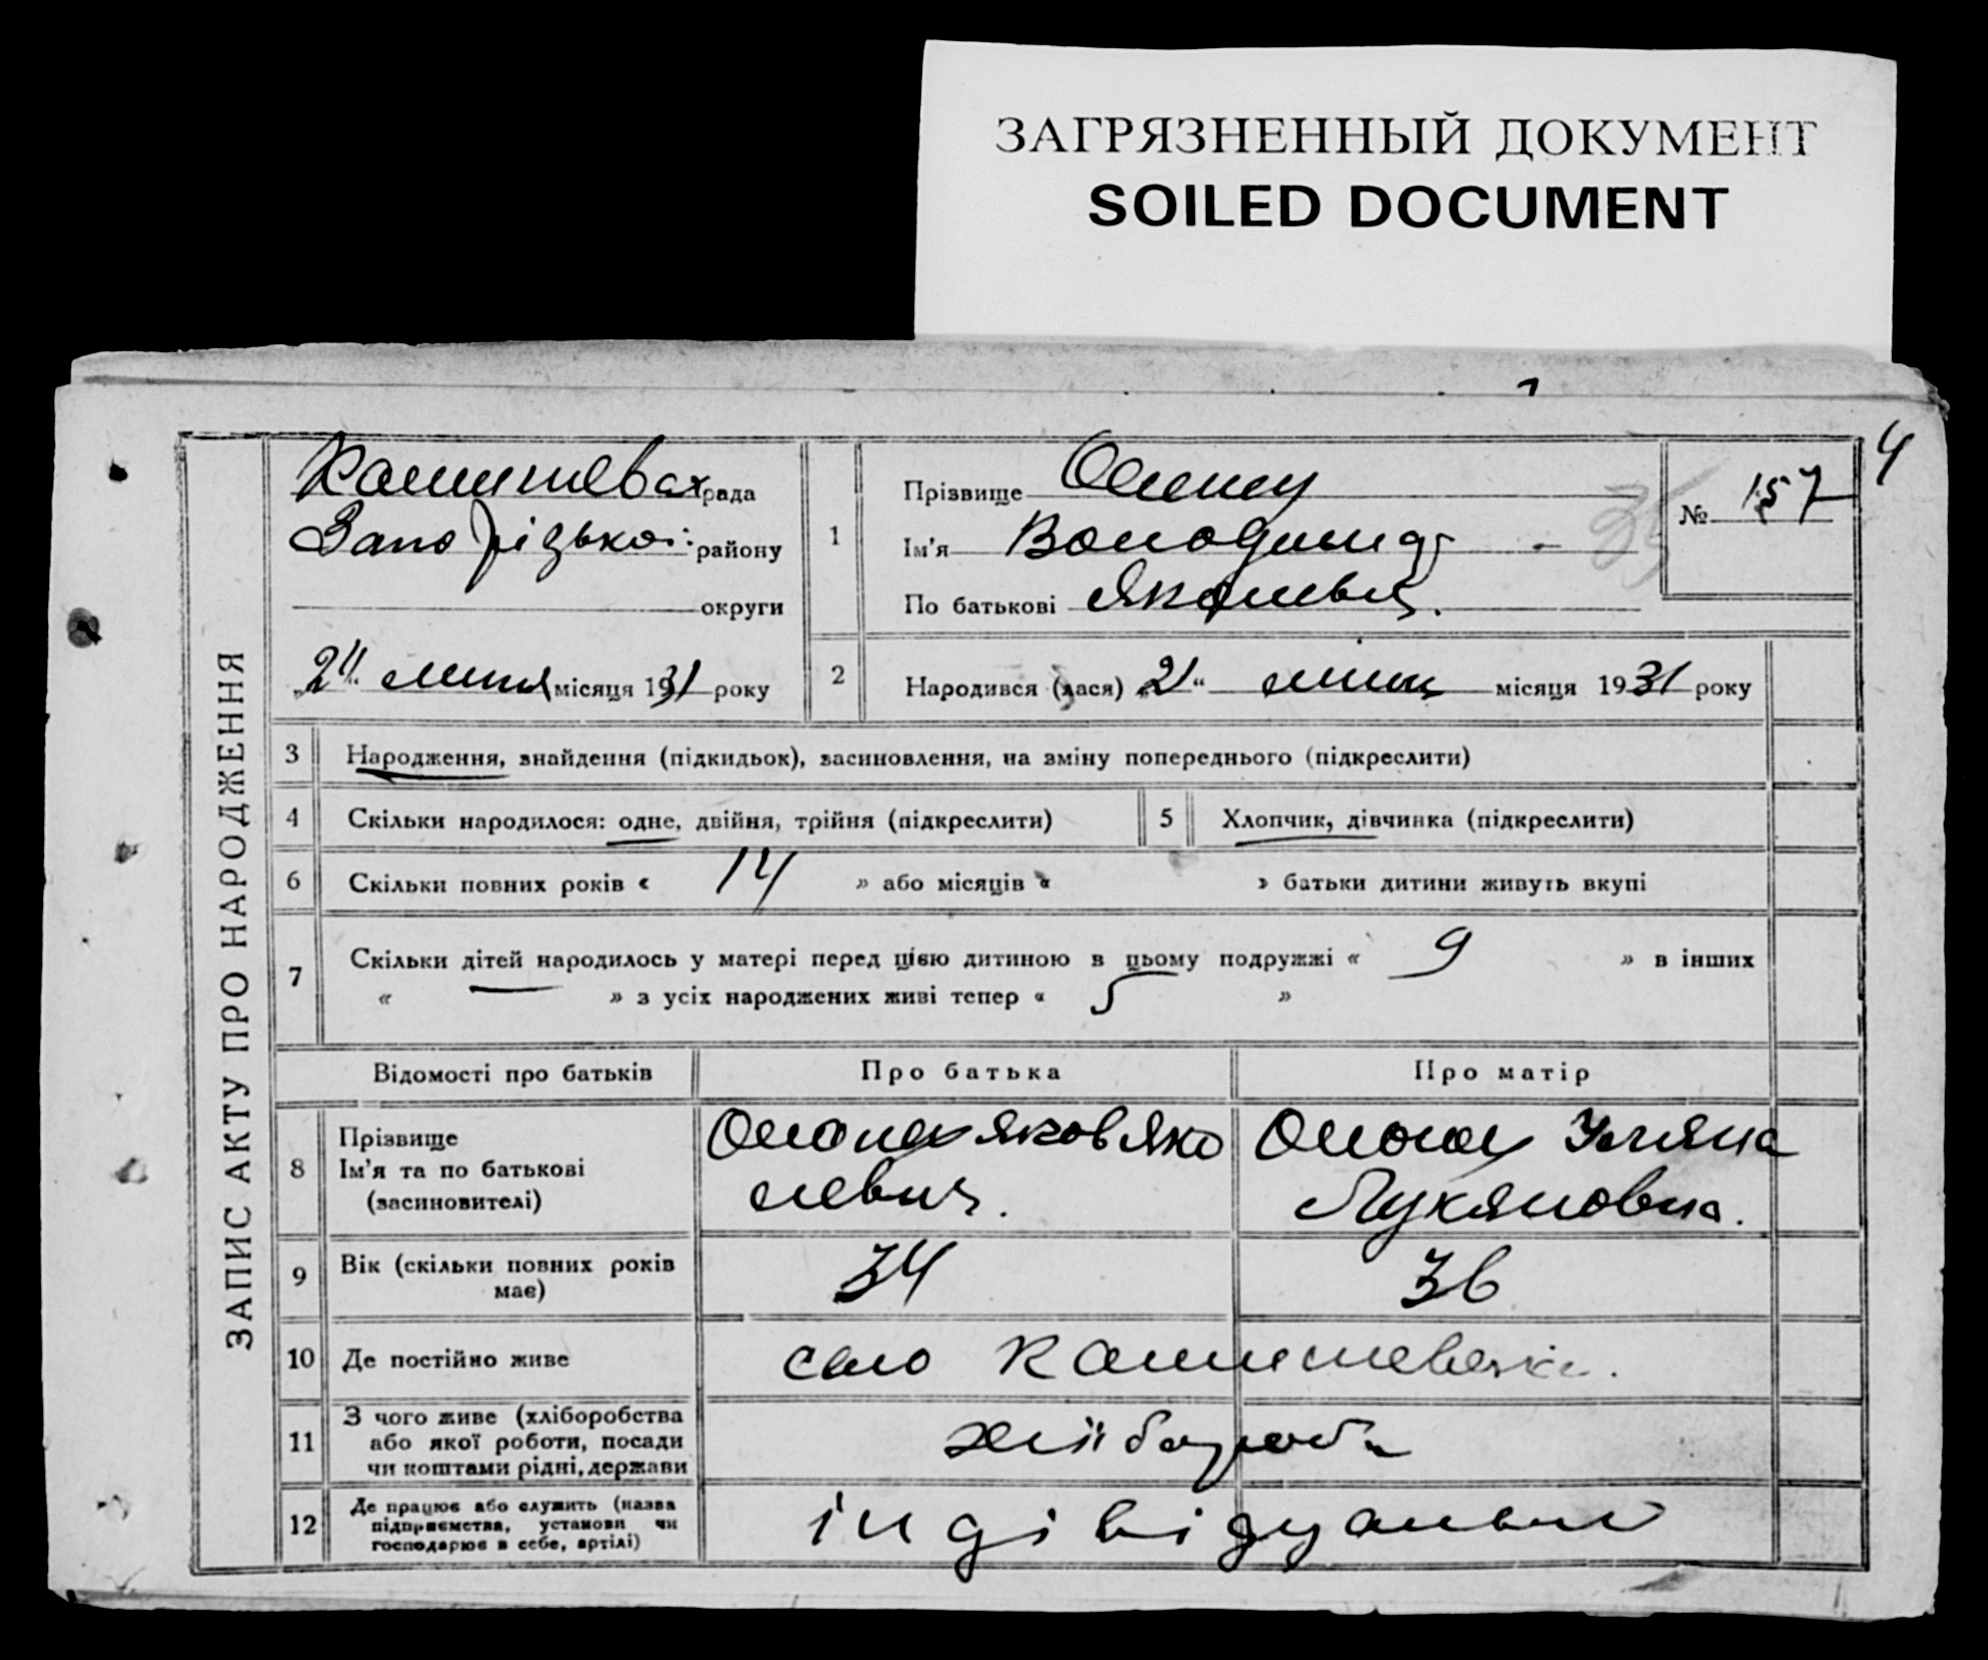 ЗАГРЯЗНЕННЫЙ ДОКУМЕНТ
SOILED DOCUMENT
4
ЗАПИС АКТУ ПРО НАРОДЖЕННЯ
рада
району
округи
"24" липня місяця 1931 року
1
Прізвище
Ім'я Володимир
По батькові Яковлевич.
№ 157
2 Народився (лася) "21" липня місяця 1931 року
3 Народження, знайдення (підкидьок), засиновлення, на зміну попереднього (підкреслити)
4 Скільки народилося: одне, двійня, трійня (підкреслити) 5 Хлопчик, дівчинка (підкреслити)
6 Скільки повних років « 14 » або місяців « » батьки дитини живуть вкупі
7 Скільки дітей народилось у матері перед цією дитиною в цьому подружжі « 9 » в інших
« — » з усіх народжених живі тепер « 5 »
Відомості про батьків Про батька Про матір
8 Прізвище
Ім'я та по батькові
(засиновителі)
Яков Яко
влевич.
Уляна
Лукяновна.
9 Вік (скільки повних років
має) 34 36
10 Де постійно живе село
11 З чого живе (хліборобства
або якої роботи, посади
чи коштами рідні, держави
хліборобств
12 Де працює або служить (назва
підприємства, установи чи
господарює в себе, артілі)
індівідуально